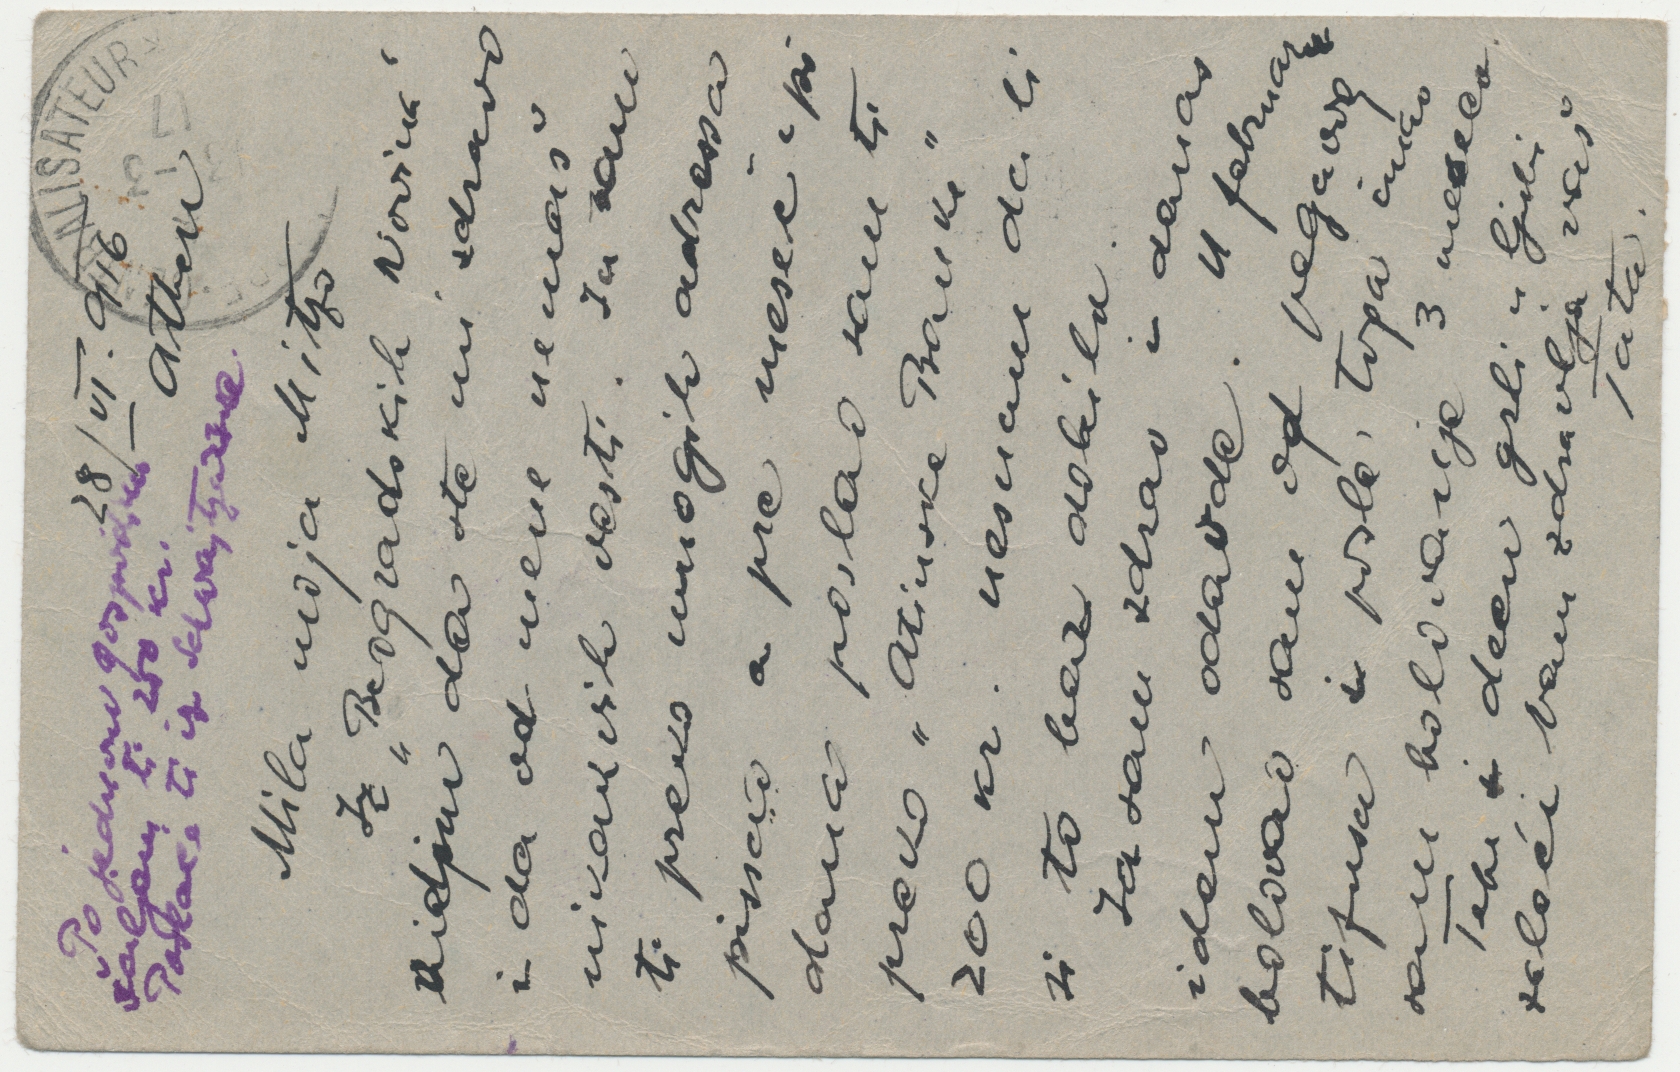 28/VI. 916
Athen
Po jednom gospodinu
šaljem ti 250 kr.
Poslaće ti iz Schvajtzarske.
Mila moja Mitzo
Iz „Beogradskih Novina“
vidjam da ste mi zdravo
i da od mene nemaš
nikakvih vesti. Ja sam
ti preko mnogih adressa
pisao a pre mesec i po
dana poslao sam ti
preko „Atinske Banke“
200 kr. neznam da li
si to bar dobila.
Ja sam zdrav i danas
idem odavde. U februaru
bolovao sam od pegavog
tifusa i posle, tupa imao
sam bolovanje 3 meseca.
Tebe i decu grli i ljubi
želeći vam zdravlja vaš
Tata.
NALISATEUR